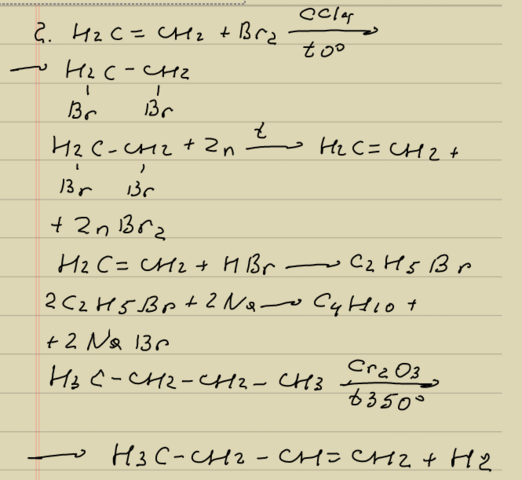 2. H2C = CH2 + Br2 CCl4 t0°
→ H2C - CH2
Br Br
H2C-CH2 + Zn t → H2C=CH2 +
Br Br
+ ZnBr2
H2C = CH2 + HBr → C2H5Br
2C2H5Br + 2Na → C4H10 +
+ 2NaBr
H3C-CH2-CH2-CH3 Cr2O3 t350°
→ H3C-CH2-CH=CH2 + H2